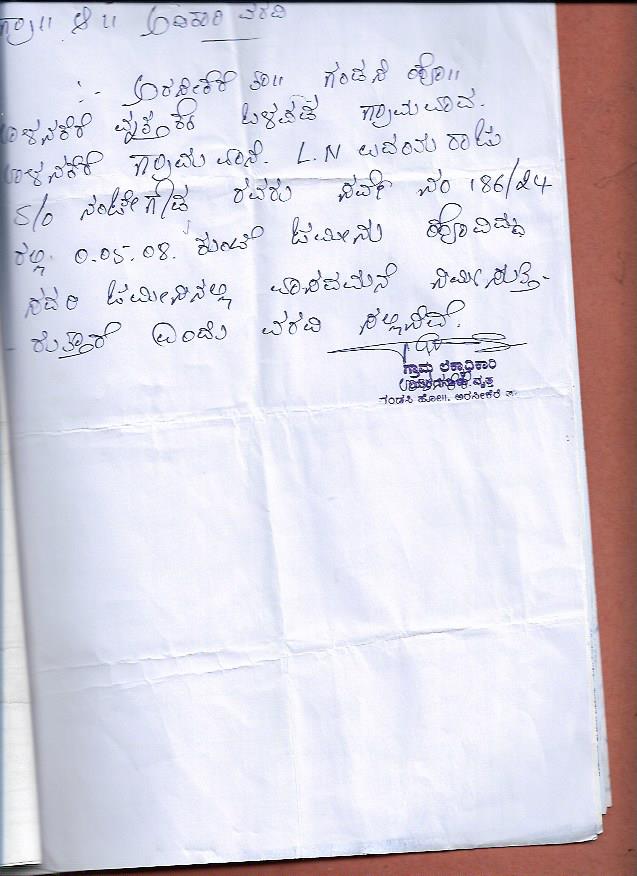 ಗ್ರಾ॥ ಆ॥ ಅಧಿಕಾರಿ ವರದಿ
:- ಅರಸೀಕೆರೆ ತಾ॥ ಗಂಡಸಿ ಹೋ॥
ವೃತ್ತಕ್ಕೆ ಒಳಪಟ್ಟ ಗ್ರಾಮ
ಗ್ರಾಮ ವಾಸಿ. L.N ರಾಜು
S/O ನಂಜೇಗೌಡ ರವರು ಸರ್ವೆ ನಂ 186/24
ರಲ್ಲಿ 0.05.08. ಕುಂಟೆ ಜಮೀನು ಹೊಂದಿದ್ದು
ಸದರಿ ಜಮೀನಿನಲ್ಲಿ ವಾಸದಮನೆ ನಿರ್ಮಿಸುತ್ತಿ-
ರುತ್ತಾರೆ ಎಂದು ವರದಿ ಸಲ್ಲಿಸಿದೆ.
ಗ್ರಾಮ ಲೆಕ್ಕಾಧಿಕಾರಿ
ವೃತ್ತ
ಗಂಡಸಿ ಹೋ॥, ಅರಸೀಕೆರೆ ತಾ